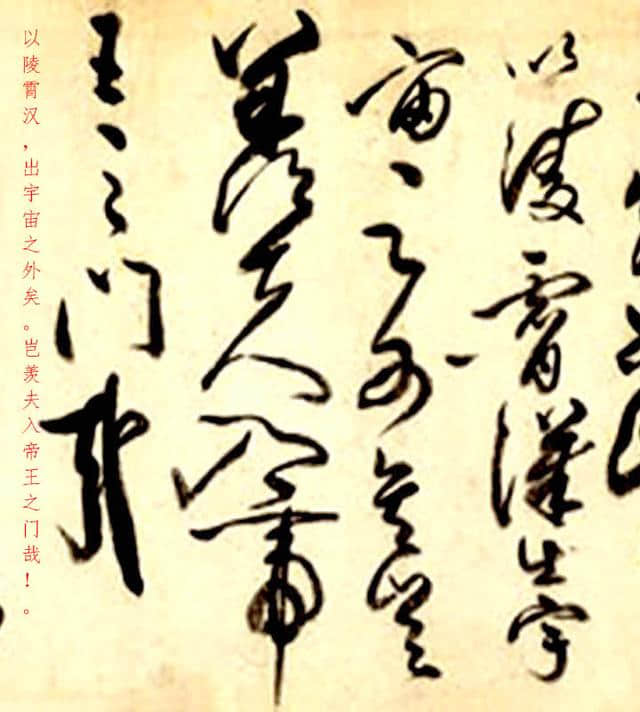 以陵霄漢出宇
宙之外矣豈
羨夫入帝
王之门哉
以陵霄汉，出宇宙之外矣。岂羡夫入帝王之门哉！。